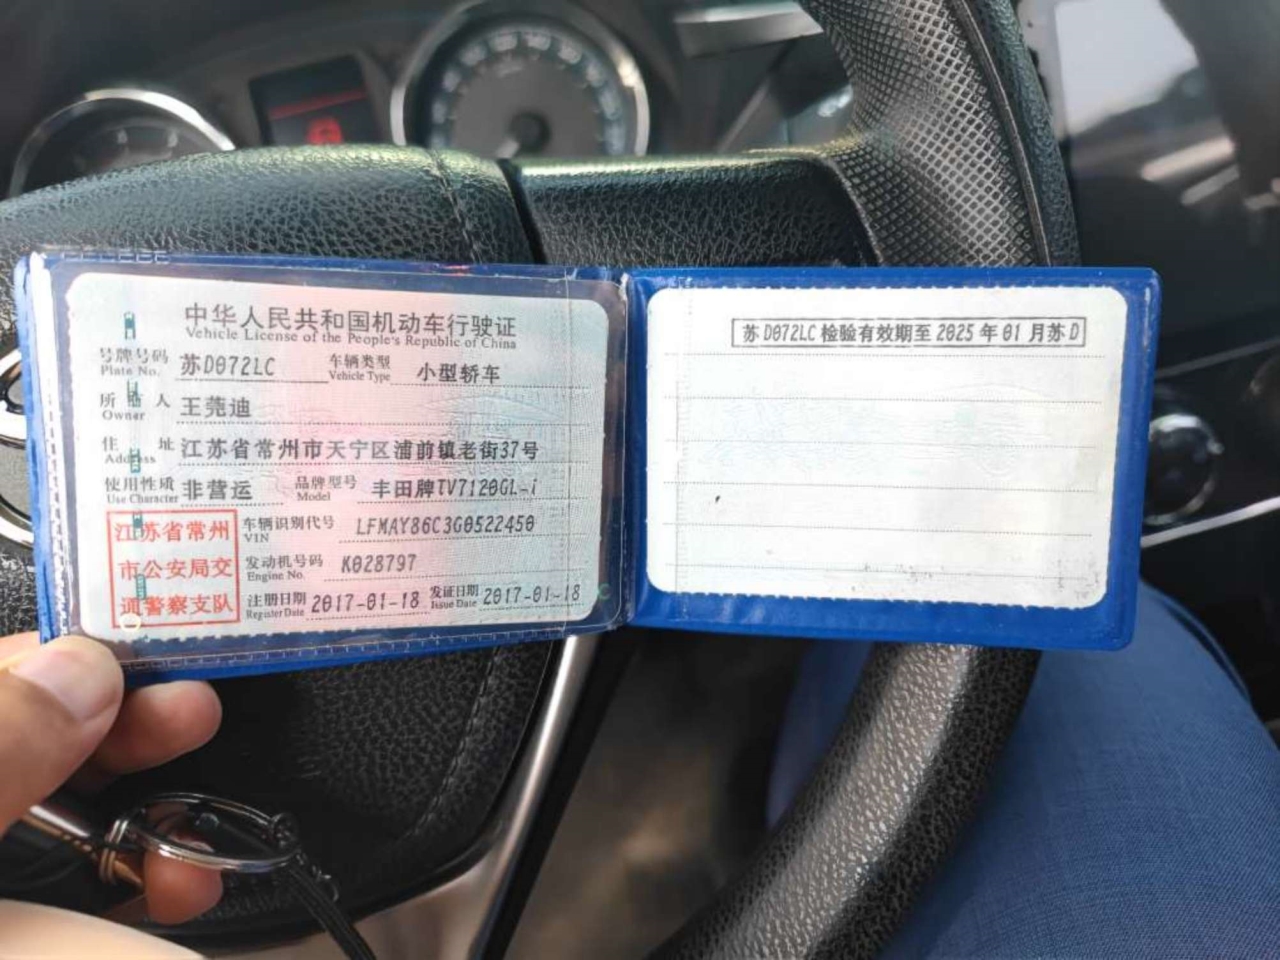 中华人民共和国机动车行驶证
Vehicle License of the People's Republic of China
号牌号码 苏D072LC 车辆类型 小型轿车
Plate No. Vehicle Type
所有人 王莞迪
Owner
住址 江苏省常州市天宁区浦前镇老街37号
Address
使用性质 非营运 品牌型号 丰田牌TV7120GL-i
Use Character Model
江苏省常州 车辆识别代号 LFMAY86C3G0522450
VIN
市公安局交 发动机号码 K028797
Engine No.
通警察支队 注册日期 2017-01-18 发证日期 2017-01-18
Register Date Issue Date
苏D072LC检验有效期至2025年01月苏D